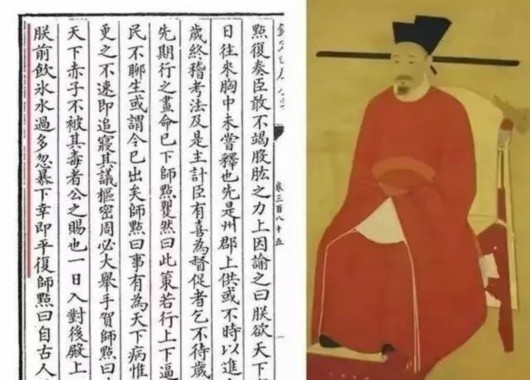 卷三百八十五
點復奏臣敢不竭股肱之力上因諭之曰朕欲天下
日往來胸中未嘗釋也先是州郡上供或不時以進
歲終稽考法及是主計臣有喜為督促者乞不待歲
先期行之畫命已下師點矍然曰此策若行上下逼
民不聊生或謂今已出矣師點曰事有為天下病惟
更之不速即追寢其議樞密周必大舉手賀師點曰
天下赤子不被其毒者公之賜也一日入對後殿上
朕前飲氷水過多忽暴下幸即平復師點曰自古人